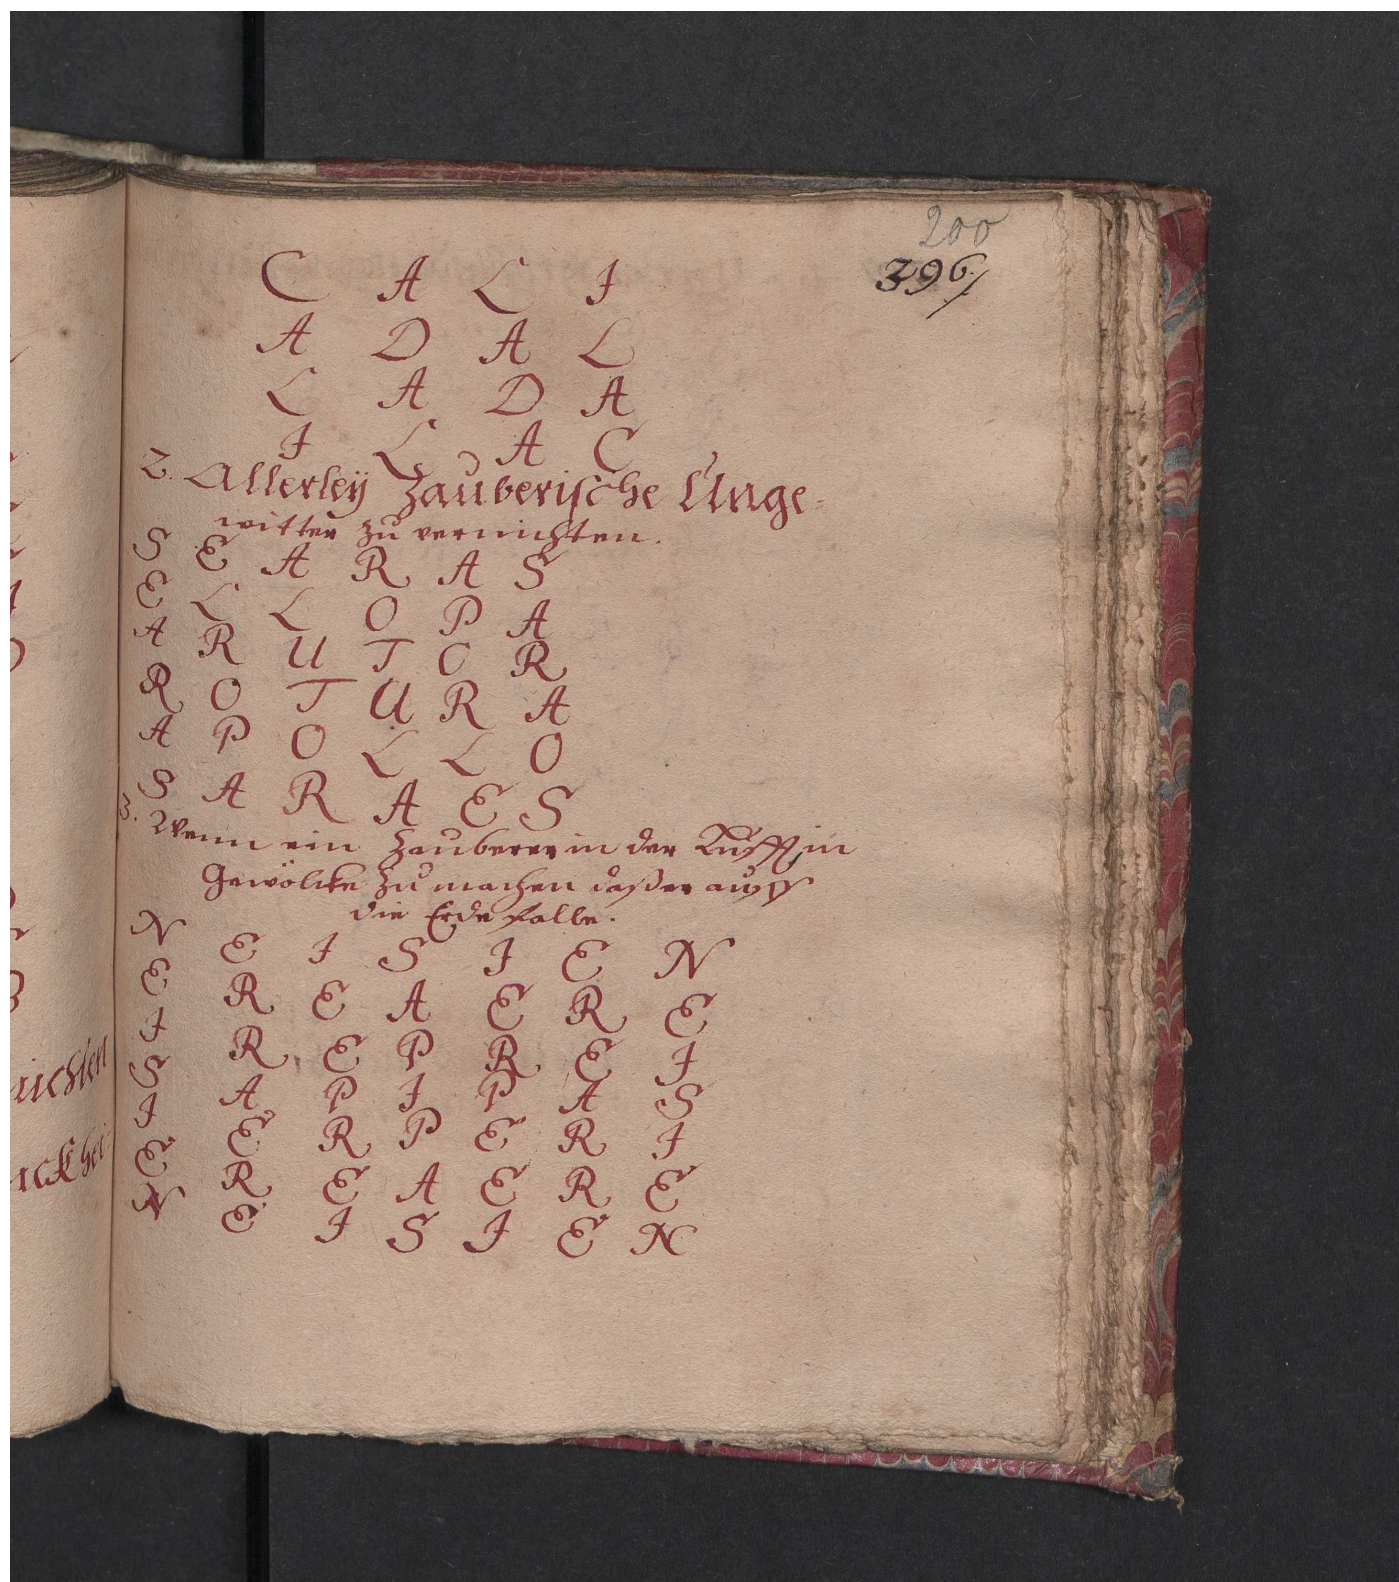 200
396/
C A L I
A D A L
L A D A
I L A C
2. Allerleÿ Zauberische Unge-
witter zu vernichten.
S E A R A S
E L L O P A
A R U T O R
R O T U R A
A P O L L O
S A R A E S
3. Wenn ein Zauberer in der Lufft, in
Gewölcke zu machen daß er auff
die Erde falle.
N E I S I E N
E R E A E R E
I R E P R E I
S A P I P A S
I E R P E R I
E R E A E R E
N E I S I E N
ichten
ckhei